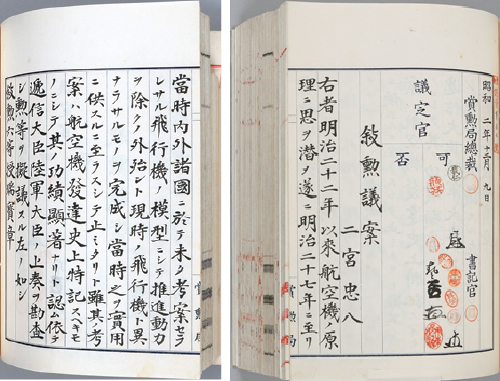 昭和 二年十二月 九日
賞勲局總裁
書記官
議定官
可
否
敍勲議案
二宮忠八
右者明治二十二年以來航空機ノ原
理ニ思ヲ潜メ遂ニ明治二十七年ニ至リ
賞勲局
當時内外諸國ニ於テ未タ考案セラ
レサル飛行機ノ模型ニシテ推進動力
ヲ除クノ外殆ント現時ノ飛行機ト異
ナラサルモノヲ完成シ當時之ヲ實用
ニ供スルニ至ラスシテ止ミタリト雖其ノ考
案ハ航空機發達史上特記スヘキモ
ノニシテ其ノ功績顯著ナリト認ム依テ
逓信大臣陸軍大臣ノ上奏ヲ勘査
シ勲等ヲ擬議スル左ノ如シ
敍勲六等授瑞寶章
賞勲局